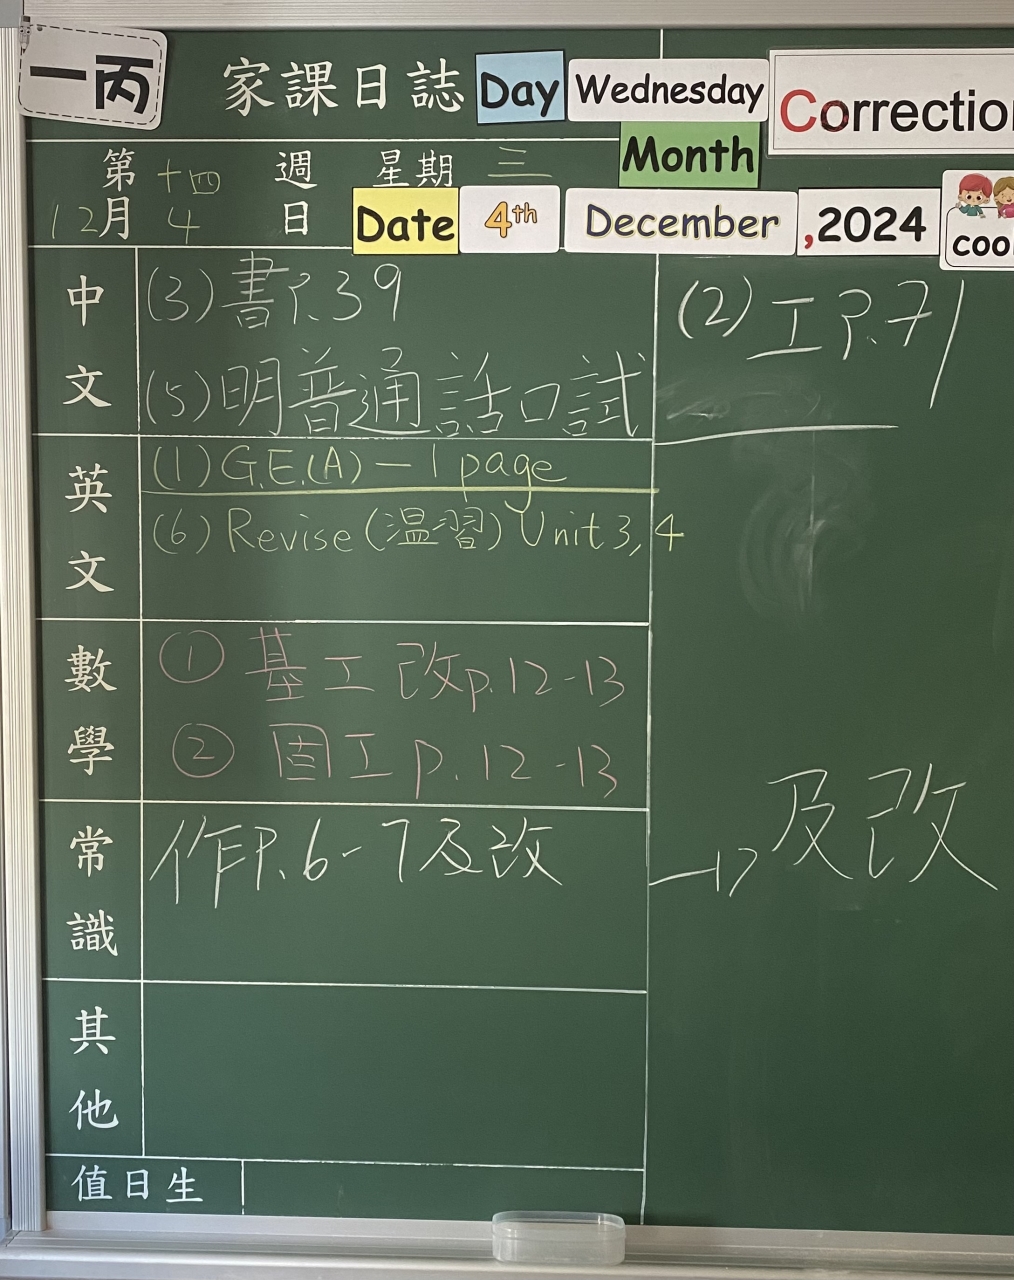 一丙
家課日誌 Day Wednesday Correction
Month
第十四週 星期三
12月4日 Date 4th December ,2024
coo
中文
(3)書P.39
(2)工P.71
(5)明普通話口試
英文
(1)G.E.(A)－1 page
(6)Revise(溫習)Unit 3,4
數學
① 基工改p.12-13
② 固工p.12-13
常識
作P.6-7及改
及改
其他
值日生